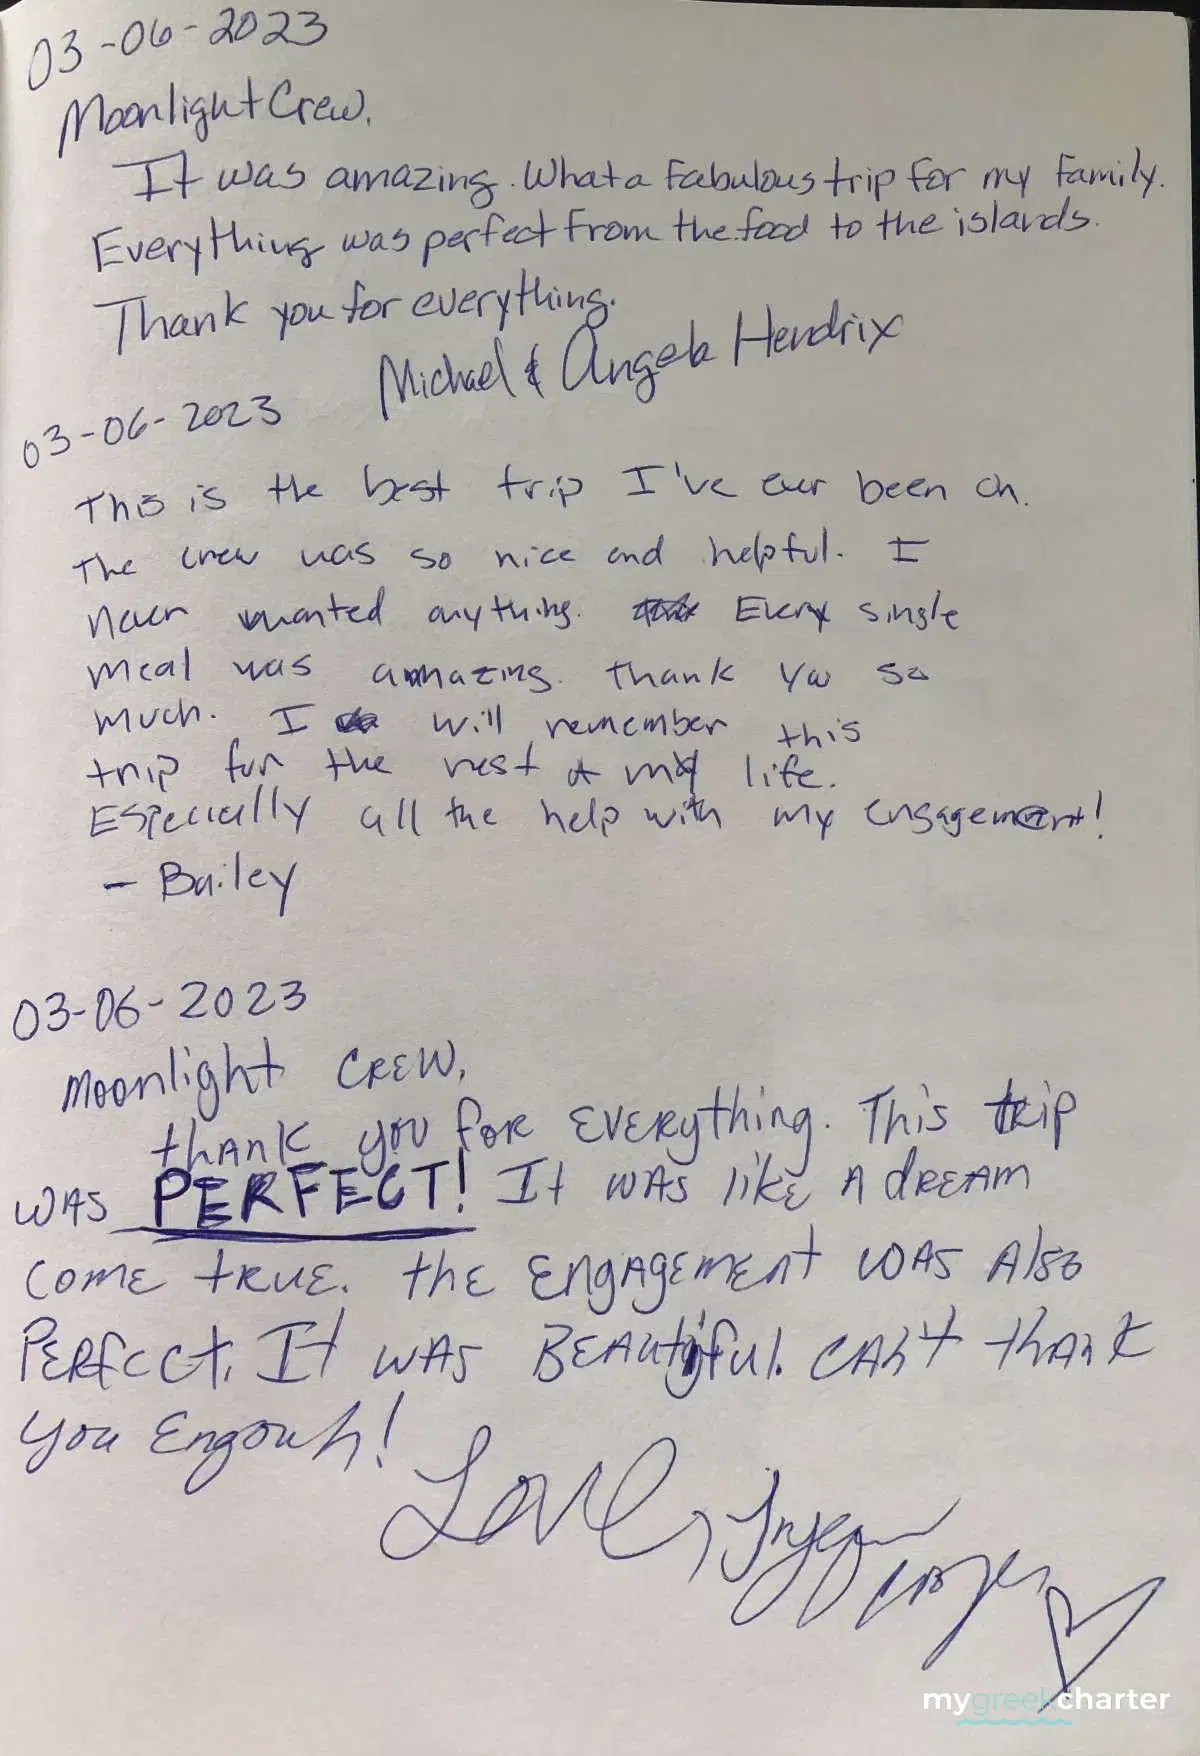 03-06-2023
Moonlight Crew,
It was amazing. What a fabulous trip for my family.
Everything was perfect from the food to the islands.
Thank you for everything.
Michael & Angela Hendrix
03-06-2023
This is the best trip I've ever been on.
The crew was so nice and helpful. I
never wanted anything. Every single
meal was amazing. Thank you so
much. I will remember this
trip for the rest of my life.
Especially all the help with my engagement!
- Bailey
03-06-2023
Moonlight CREW,
thank you for EVERything. This trip
was PERFECT! It was like A dREAM
come tRUE. the ENgAgEMENt was Also
PERfEct. It was BEAUtiful. CAn't thAnk
you Engouh!
Love,
mygreekcharter